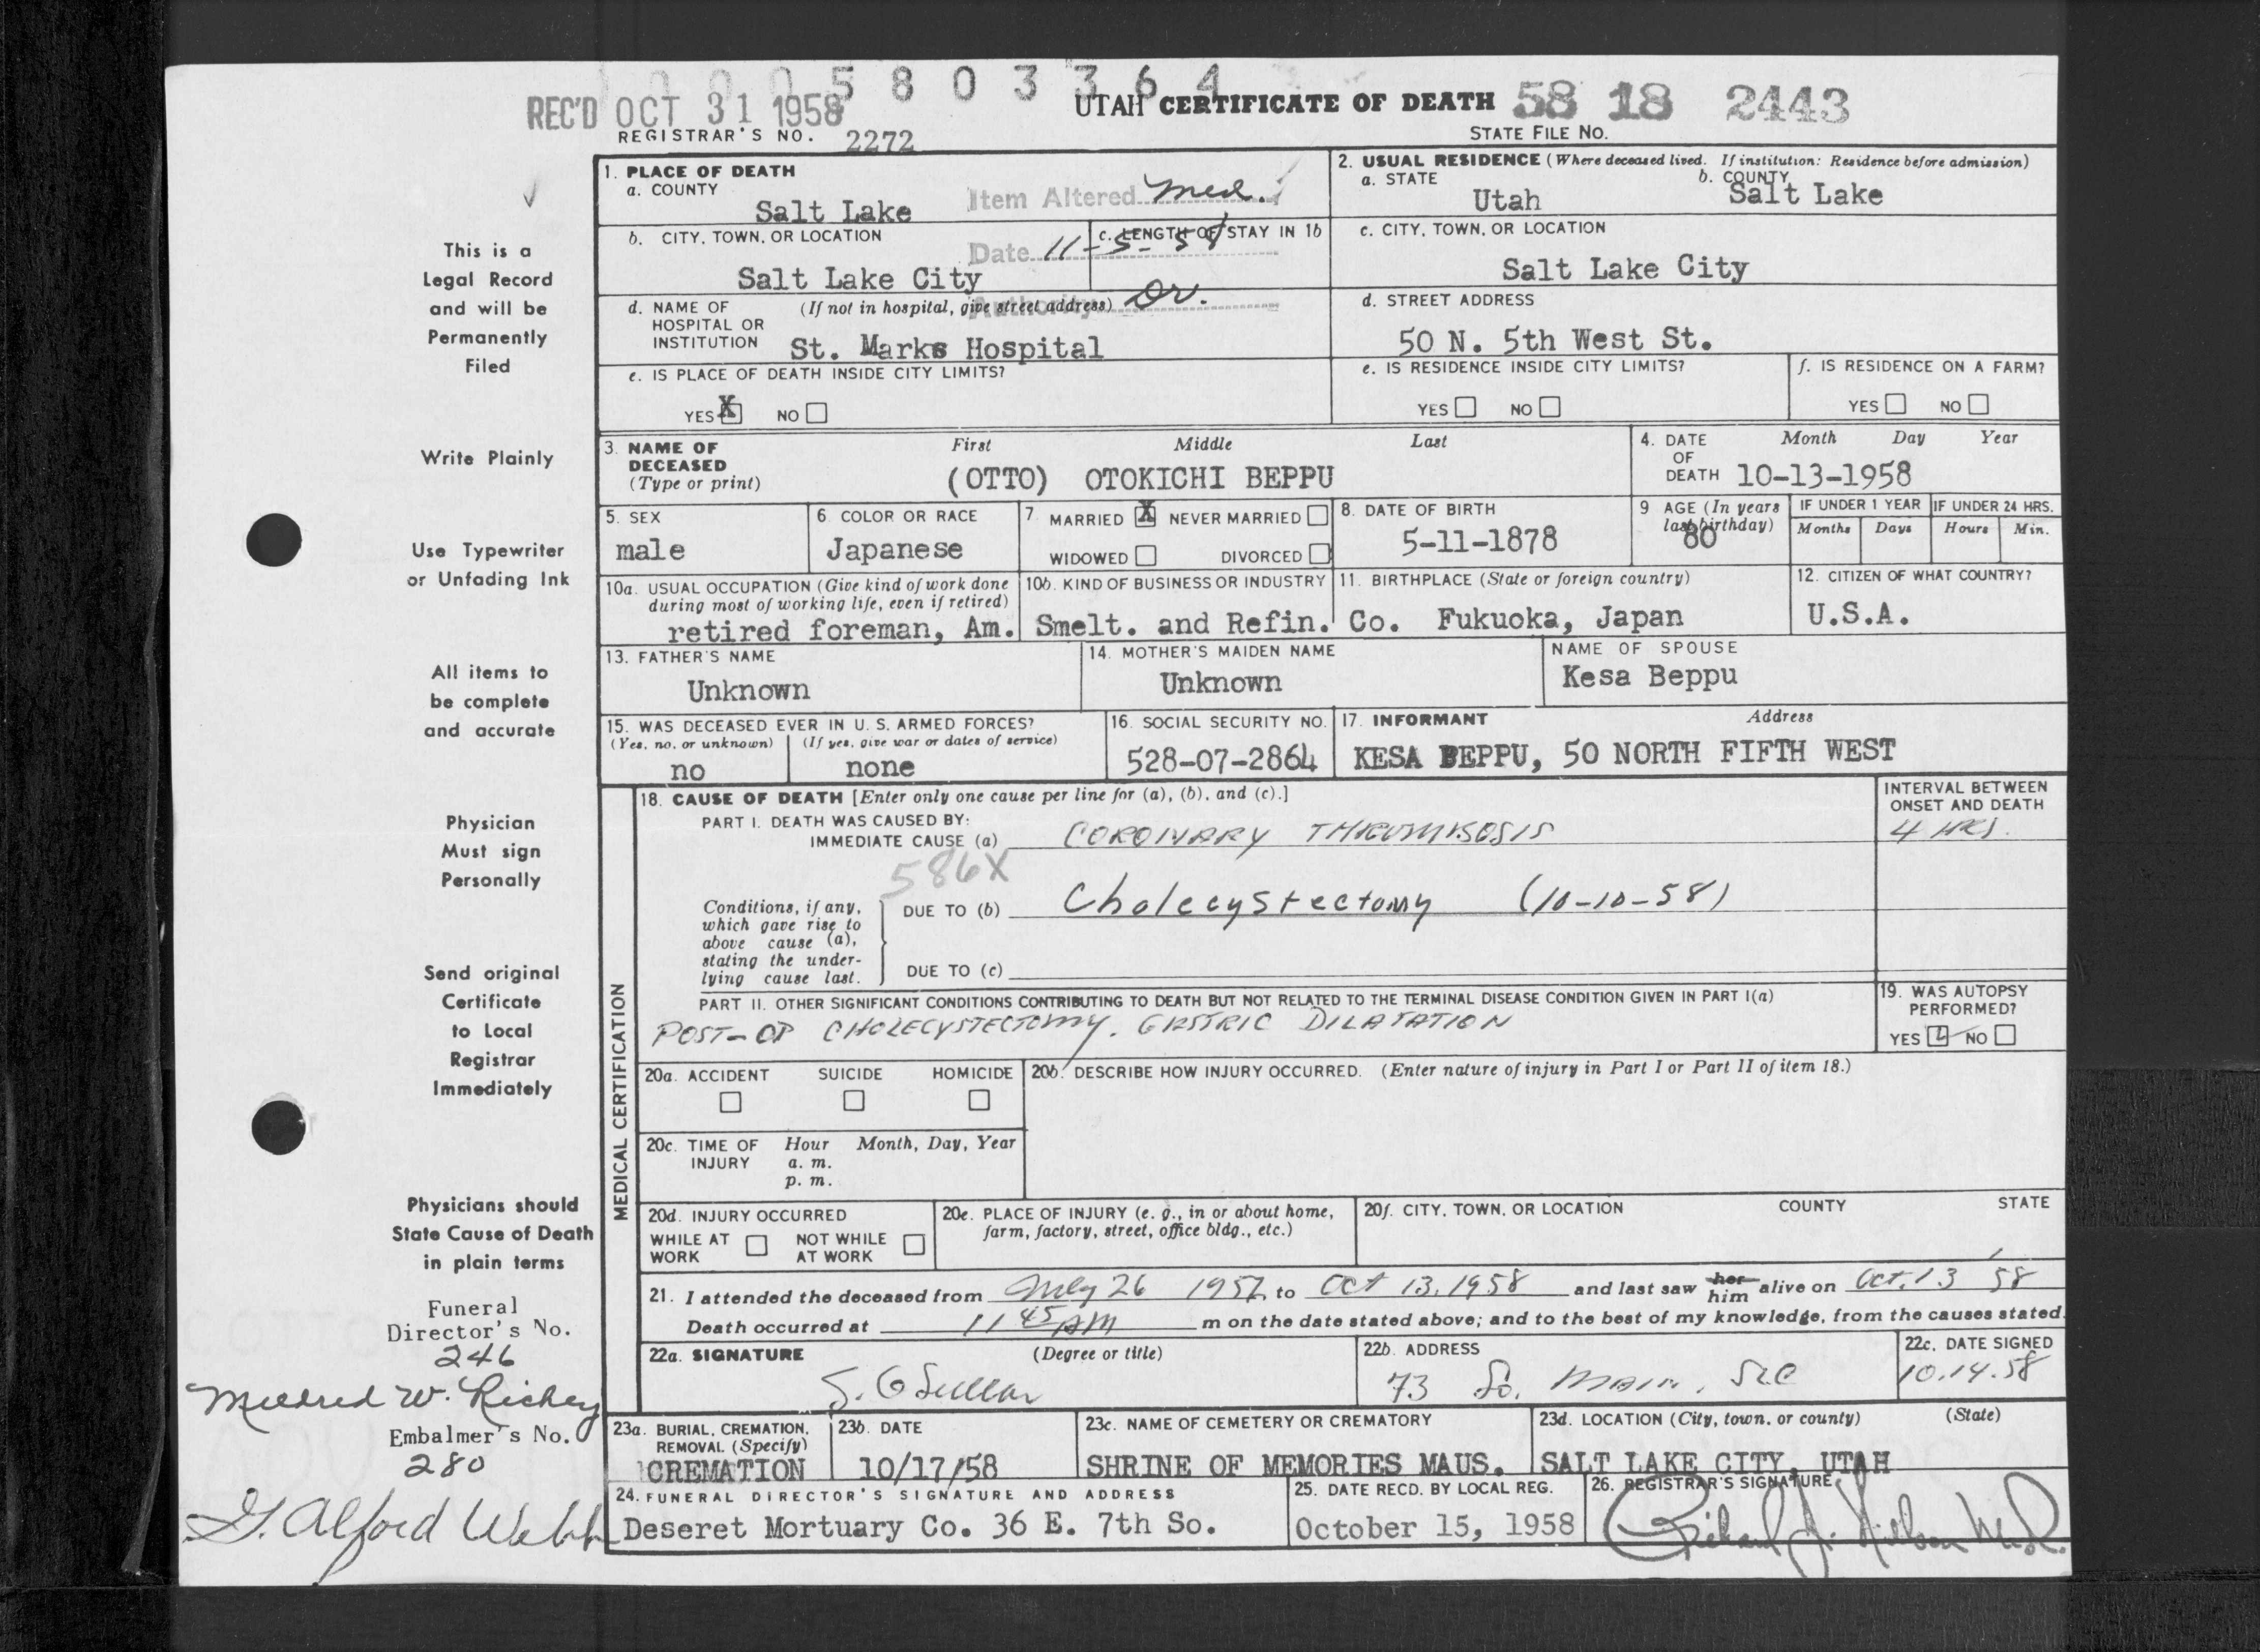 0005803364
REC'D OCT 31 1958
UTAH CERTIFICATE OF DEATH 58 18 2443
REGISTRAR'S NO. 2272
STATE FILE NO.
This is a
Legal Record
and will be
Permanently
Filed
Write Plainly
Use Typewriter
or Unfading Ink
All items to
be complete
and accurate
Physician
Must sign
Personally
Send original
Certificate
to Local
Registrar
Immediately
Physicians should
State Cause of Death
in plain terms
Funeral
Director's No.
246
Mildred W. Richey
Embalmer's No.
280
G. Alford Webb
1. PLACE OF DEATH
a. COUNTY
Salt Lake
Item Altered Med.
Date 11-5-58
Authority Dr.
2. USUAL RESIDENCE (Where deceased lived. If institution: Residence before admission)
a. STATE
Utah
b. COUNTY
Salt Lake
b. CITY, TOWN, OR LOCATION
Salt Lake City
c. LENGTH OF STAY IN 1b
c. CITY, TOWN, OR LOCATION
Salt Lake City
d. NAME OF HOSPITAL OR INSTITUTION
(If not in hospital, give street address)
St. Marks Hospital
d. STREET ADDRESS
50 N. 5th West St.
e. IS PLACE OF DEATH INSIDE CITY LIMITS?
YES X NO
e. IS RESIDENCE INSIDE CITY LIMITS?
YES NO
f. IS RESIDENCE ON A FARM?
YES NO
3. NAME OF DECEASED (Type or print)
First Middle Last
(OTTO) OTOKICHI BEPPU
4. DATE OF DEATH
Month Day Year
10-13-1958
5. SEX
male
6. COLOR OR RACE
Japanese
7. MARRIED X NEVER MARRIED
WIDOWED DIVORCED
8. DATE OF BIRTH
5-11-1878
9 AGE (In years last birthday)
80
IF UNDER 1 YEAR
Months Days
IF UNDER 24 HRS.
Hours Min.
10a. USUAL OCCUPATION (Give kind of work done
during most of working life, even if retired)
10b. KIND OF BUSINESS OR INDUSTRY
11. BIRTHPLACE (State or foreign country)
retired foreman, Am. Smelt. and Refin. Co. Fukuoka, Japan
12. CITIZEN OF WHAT COUNTRY?
U.S.A.
13. FATHER'S NAME
Unknown
14. MOTHER'S MAIDEN NAME
Unknown
NAME OF SPOUSE
Kesa Beppu
15. WAS DECEASED EVER IN U. S. ARMED FORCES?
(Yes, no, or unknown) (If yes, give war or dates of service)
no none
16. SOCIAL SECURITY NO.
528-07-2864
17. INFORMANT Address
KESA BEPPU, 50 NORTH FIFTH WEST
MEDICAL CERTIFICATION
18. CAUSE OF DEATH [Enter only one cause per line for (a), (b), and (c).]
INTERVAL BETWEEN
ONSET AND DEATH
PART I. DEATH WAS CAUSED BY:
IMMEDIATE CAUSE (a) CORONARY THROMBOSIS
4 HRS.
586X
Conditions, if any,
which gave rise to
above cause (a),
stating the under-
lying cause last.
DUE TO (b) Cholecystectomy (10-10-58)
DUE TO (c)
PART II. OTHER SIGNIFICANT CONDITIONS CONTRIBUTING TO DEATH BUT NOT RELATED TO THE TERMINAL DISEASE CONDITION GIVEN IN PART I(a)
POST-OP CHOLECYSTECTOMY. GASTRIC DILATATION
19. WAS AUTOPSY
PERFORMED?
YES NO
20a. ACCIDENT SUICIDE HOMICIDE
20b. DESCRIBE HOW INJURY OCCURRED. (Enter nature of injury in Part I or Part II of item 18.)
20c. TIME OF INJURY
Hour Month, Day, Year
a. m.
p. m.
20d. INJURY OCCURRED
WHILE AT WORK NOT WHILE AT WORK
20e. PLACE OF INJURY (e. g., in or about home,
farm, factory, street, office bldg., etc.)
20f. CITY, TOWN, OR LOCATION COUNTY STATE
21. I attended the deceased from July 26 1957 to Oct 13, 1958 and last saw her him alive on Oct. 13 58
Death occurred at 11 45 AM m on the date stated above; and to the best of my knowledge, from the causes stated.
22a. SIGNATURE (Degree or title)
22b. ADDRESS
73 So. Main, SLC
22c. DATE SIGNED
10.14.58
23a. BURIAL, CREMATION,
REMOVAL (Specify)
CREMATION
23b. DATE
10/17/58
23c. NAME OF CEMETERY OR CREMATORY
SHRINE OF MEMORIES MAUS.
23d. LOCATION (City, town, or county) (State)
SALT LAKE CITY, UTAH
24. FUNERAL DIRECTOR'S SIGNATURE AND ADDRESS
Deseret Mortuary Co. 36 E. 7th So.
25. DATE RECD. BY LOCAL REG.
October 15, 1958
26. REGISTRAR'S SIGNATURE